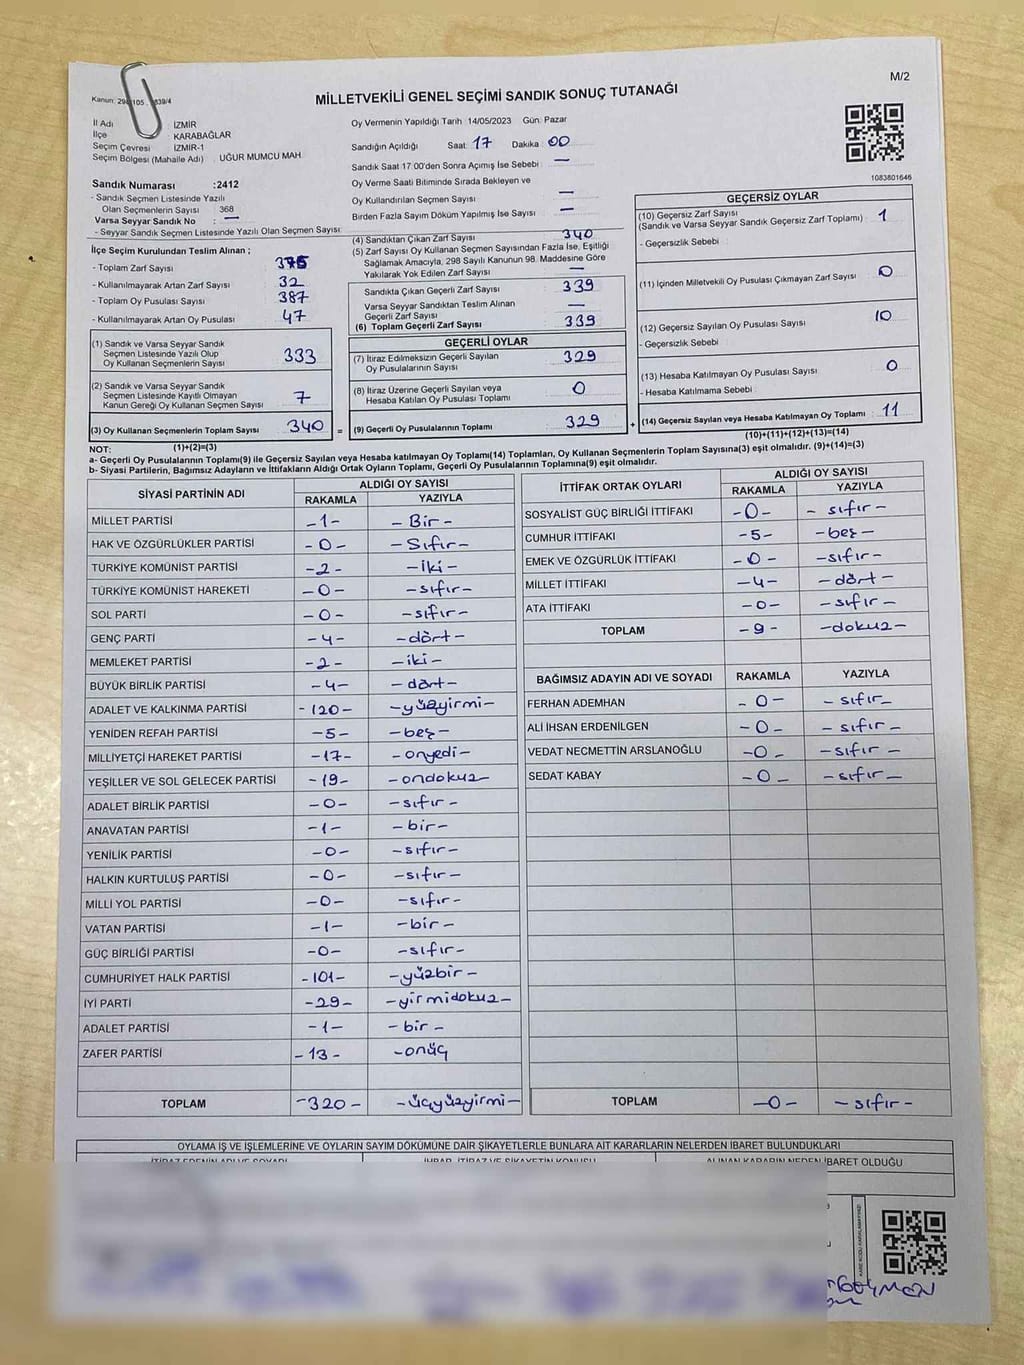 M/2
Kanun: 298 105 . 2839/4
MİLLETVEKİLİ GENEL SEÇİMİ SANDIK SONUÇ TUTANAĞI
İl Adı : İZMİR
İlçe : KARABAĞLAR
Seçim Çevresi : İZMİR-1
Seçim Bölgesi (Mahalle Adı) . UĞUR MUMCU MAH.
Oy Vermenin Yapıldığı Tarih 14/05/2023 Gün: Pazar
Sandığın Açıldığı Saat: 17 Dakika: 00
Sandık Saat 17.00'den Sonra Açımış İse Sebebi : —
Oy Verme Saati Bitiminde Sırada Bekleyen ve
Oy Kullandırılan Seçmen Sayısı : —
Birden Fazla Sayım Döküm Yapılmış İse Sayısı : —
1083801646
Sandık Numarası :2412
- Sandık Seçmen Listesinde Yazılı
Olan Seçmenlerin Sayısı : 368
Varsa Seyyar Sandık No : —
- Seyyar Sandık Seçmen Listesinde Yazılı Olan Seçmen Sayısı:
İlçe Seçim Kurulundan Teslim Alınan ;
- Toplam Zarf Sayısı : 375
- Kullanılmayarak Artan Zarf Sayısı : 32
- Toplam Oy Pusulası Sayısı : 387
- Kullanılmayarak Artan Oy Pusulası : 47
(1) Sandık ve Varsa Seyyar Sandık
Seçmen Listesinde Yazılı Olup
Oy Kullanan Seçmenlerin Sayısı : 333
(2) Sandık ve Varsa Seyyar Sandık
Seçmen Listesinde Kayıtlı Olmayan
Kanun Gereği Oy Kullanan Seçmen Sayısı : 7
(3) Oy Kullanan Seçmenlerin Toplam Sayısı : 340
(1)+(2)=(3)
(4) Sandıktan Çıkan Zarf Sayısı : 340
(5) Zarf Sayısı Oy Kullanan Seçmen Sayısından Fazla İse, Eşitliği
Sağlamak Amacıyla, 298 Sayılı Kanunun 98. Maddesine Göre
Yakılarak Yok Edilen Zarf Sayısı : —
Sandıkta Çıkan Geçerli Zarf Sayısı : 339
Varsa Seyyar Sandıktan Teslim Alınan
Geçerli Zarf Sayısı : —
(6) Toplam Geçerli Zarf Sayısı : 339
GEÇERLİ OYLAR
(7) İtiraz Edilmeksizin Geçerli Sayılan
Oy Pusulalarının Sayısı : 329
(8) İtiraz Üzerine Geçerli Sayılan veya
Hesaba Katılan Oy Pusulası Toplamı : 0
= (9) Geçerli Oy Pusulalarının Toplamı : 329
GEÇERSİZ OYLAR
(10) Geçersiz Zarf Sayısı : 1
(Sandık ve Varsa Seyyar Sandık Geçersiz Zarf Toplamı)
- Geçersizlik Sebebi :
(11) İçinden Milletvekili Oy Pusulası Çıkmayan Zarf Sayısı : 0
(12) Geçersiz Sayılan Oy Pusulası Sayısı : 10
- Geçersizlik Sebebi :
(13) Hesaba Katılmayan Oy Pusulası Sayısı : 0
- Hesaba Katılmama Sebebi :
+ (14) Geçersiz Sayılan veya Hesaba Katılmayan Oy Toplamı : 11
(10)+(11)+(12)+(13)=(14)
NOT:
a- Geçerli Oy Pusulalarının Toplamı(9) ile Geçersiz Sayılan veya Hesaba katılmayan Oy Toplamı(14) Toplamları, Oy Kullanan Seçmenlerin Toplam Sayısına(3) eşit olmalıdır. (9)+(14)=(3)
b- Siyasi Partilerin, Bağımsız Adayların ve İttifakların Aldığı Ortak Oyların Toplamı, Geçerli Oy Pusulalarının Toplamına(9) eşit olmalıdır.
SİYASİ PARTİNİN ADI ALDIĞI OY SAYISI
RAKAMLA YAZIYLA
MİLLET PARTİSİ -1- -Bir-
HAK VE ÖZGÜRLÜKLER PARTİSİ -0- -Sıfır-
TÜRKİYE KOMÜNİST PARTİSİ -2- -iki-
TÜRKİYE KOMÜNİST HAREKETİ -0- -sıfır-
SOL PARTİ -0- -sıfır-
GENÇ PARTİ -4- -dört-
MEMLEKET PARTİSİ -2- -iki-
BÜYÜK BİRLİK PARTİSİ -4- -dört-
ADALET VE KALKINMA PARTİSİ -120- -yüzyirmi-
YENİDEN REFAH PARTİSİ -5- -beş-
MİLLİYETÇİ HAREKET PARTİSİ -17- -onyedi-
YEŞİLLER VE SOL GELECEK PARTİSİ -19- -ondokuz-
ADALET BİRLİK PARTİSİ -0- -sıfır-
ANAVATAN PARTİSİ -1- -bir-
YENİLİK PARTİSİ -0- -sıfır-
HALKIN KURTULUŞ PARTİSİ -0- -sıfır-
MİLLİ YOL PARTİSİ -0- -sıfır-
VATAN PARTİSİ -1- -bir-
GÜÇ BİRLİĞİ PARTİSİ -0- -sıfır-
CUMHURİYET HALK PARTİSİ -101- -yüzbir-
İYİ PARTİ -29- -yirmidokuz-
ADALET PARTİSİ -1- -bir-
ZAFER PARTİSİ -13- -onüç
TOPLAM -320- -üçyüzyirmi-
İTTİFAK ORTAK OYLARI ALDIĞI OY SAYISI
RAKAMLA YAZIYLA
SOSYALİST GÜÇ BİRLİĞİ İTTİFAKI -0- - sıfır-
CUMHUR İTTİFAKI -5- -beş-
EMEK VE ÖZGÜRLÜK İTTİFAKI -0- -sıfır-
MİLLET İTTİFAKI -4- -dört-
ATA İTTİFAKI -0- -sıfır-
TOPLAM -9- -dokuz-
BAĞIMSIZ ADAYIN ADI VE SOYADI RAKAMLA YAZIYLA
FERHAN ADEMHAN -0- -sıfır-
ALİ İHSAN ERDENİLGEN -0- -sıfır-
VEDAT NECMETTİN ARSLANOĞLU -0- -sıfır-
SEDAT KABAY -0- -sıfır-
TOPLAM -0- -sıfır-
OYLAMA İŞ VE İŞLEMLERİNE VE OYLARIN SAYIM DÖKÜMÜNE DAİR ŞİKAYETLERLE BUNLARA AİT KARARLARIN NELERDEN İBARET BULUNDUKLARI
İTİRAZ EDENİN ADI VE SOYADI İHBAR, İTİRAZ VE ŞİKAYETİN KONUSU ALINAN KARARIN NEDEN İBARET OLDUĞU
KARE KODU KARALAMAYINIZ!